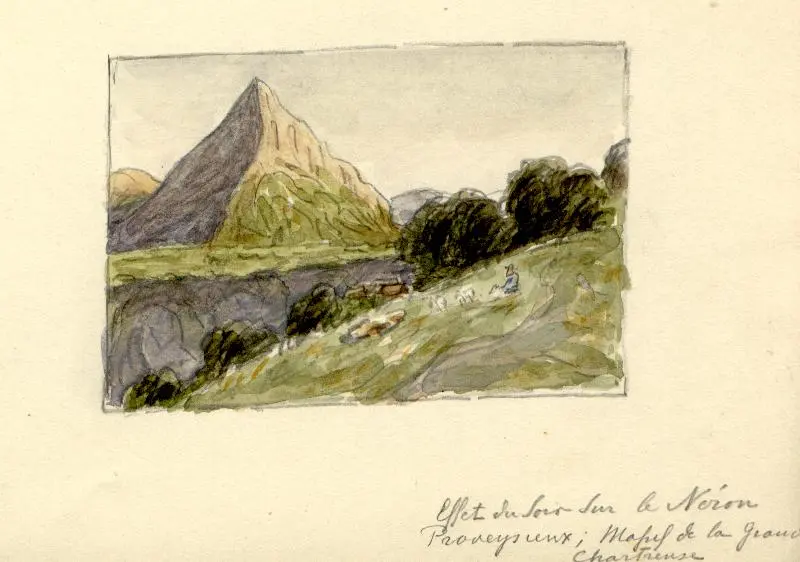 Effet du Soir sur le Néron
Proveysieux; Massif de la Grand
Chartreuse